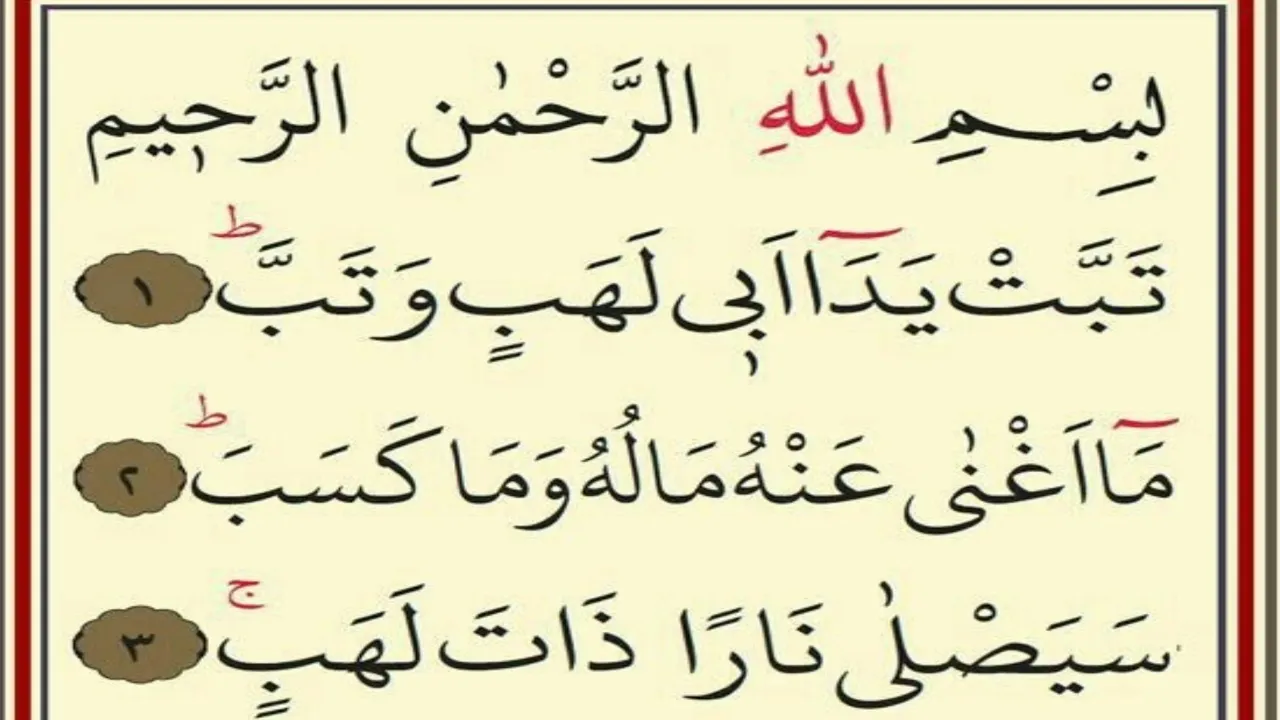 بِسْمِ اللّٰهِ الرَّحْمٰنِ الرَّحٖيمِ
تَبَّتْ يَدَٓا اَبٖى لَهَبٍ وَتَبَّۜ ط ١
مَٓا اَغْنٰى عَنْهُ مَالُهُ وَمَا كَسَبَ ط ٢
سَيَصْلٰى نَارًا ذَاتَ لَهَبٍ ج ٣